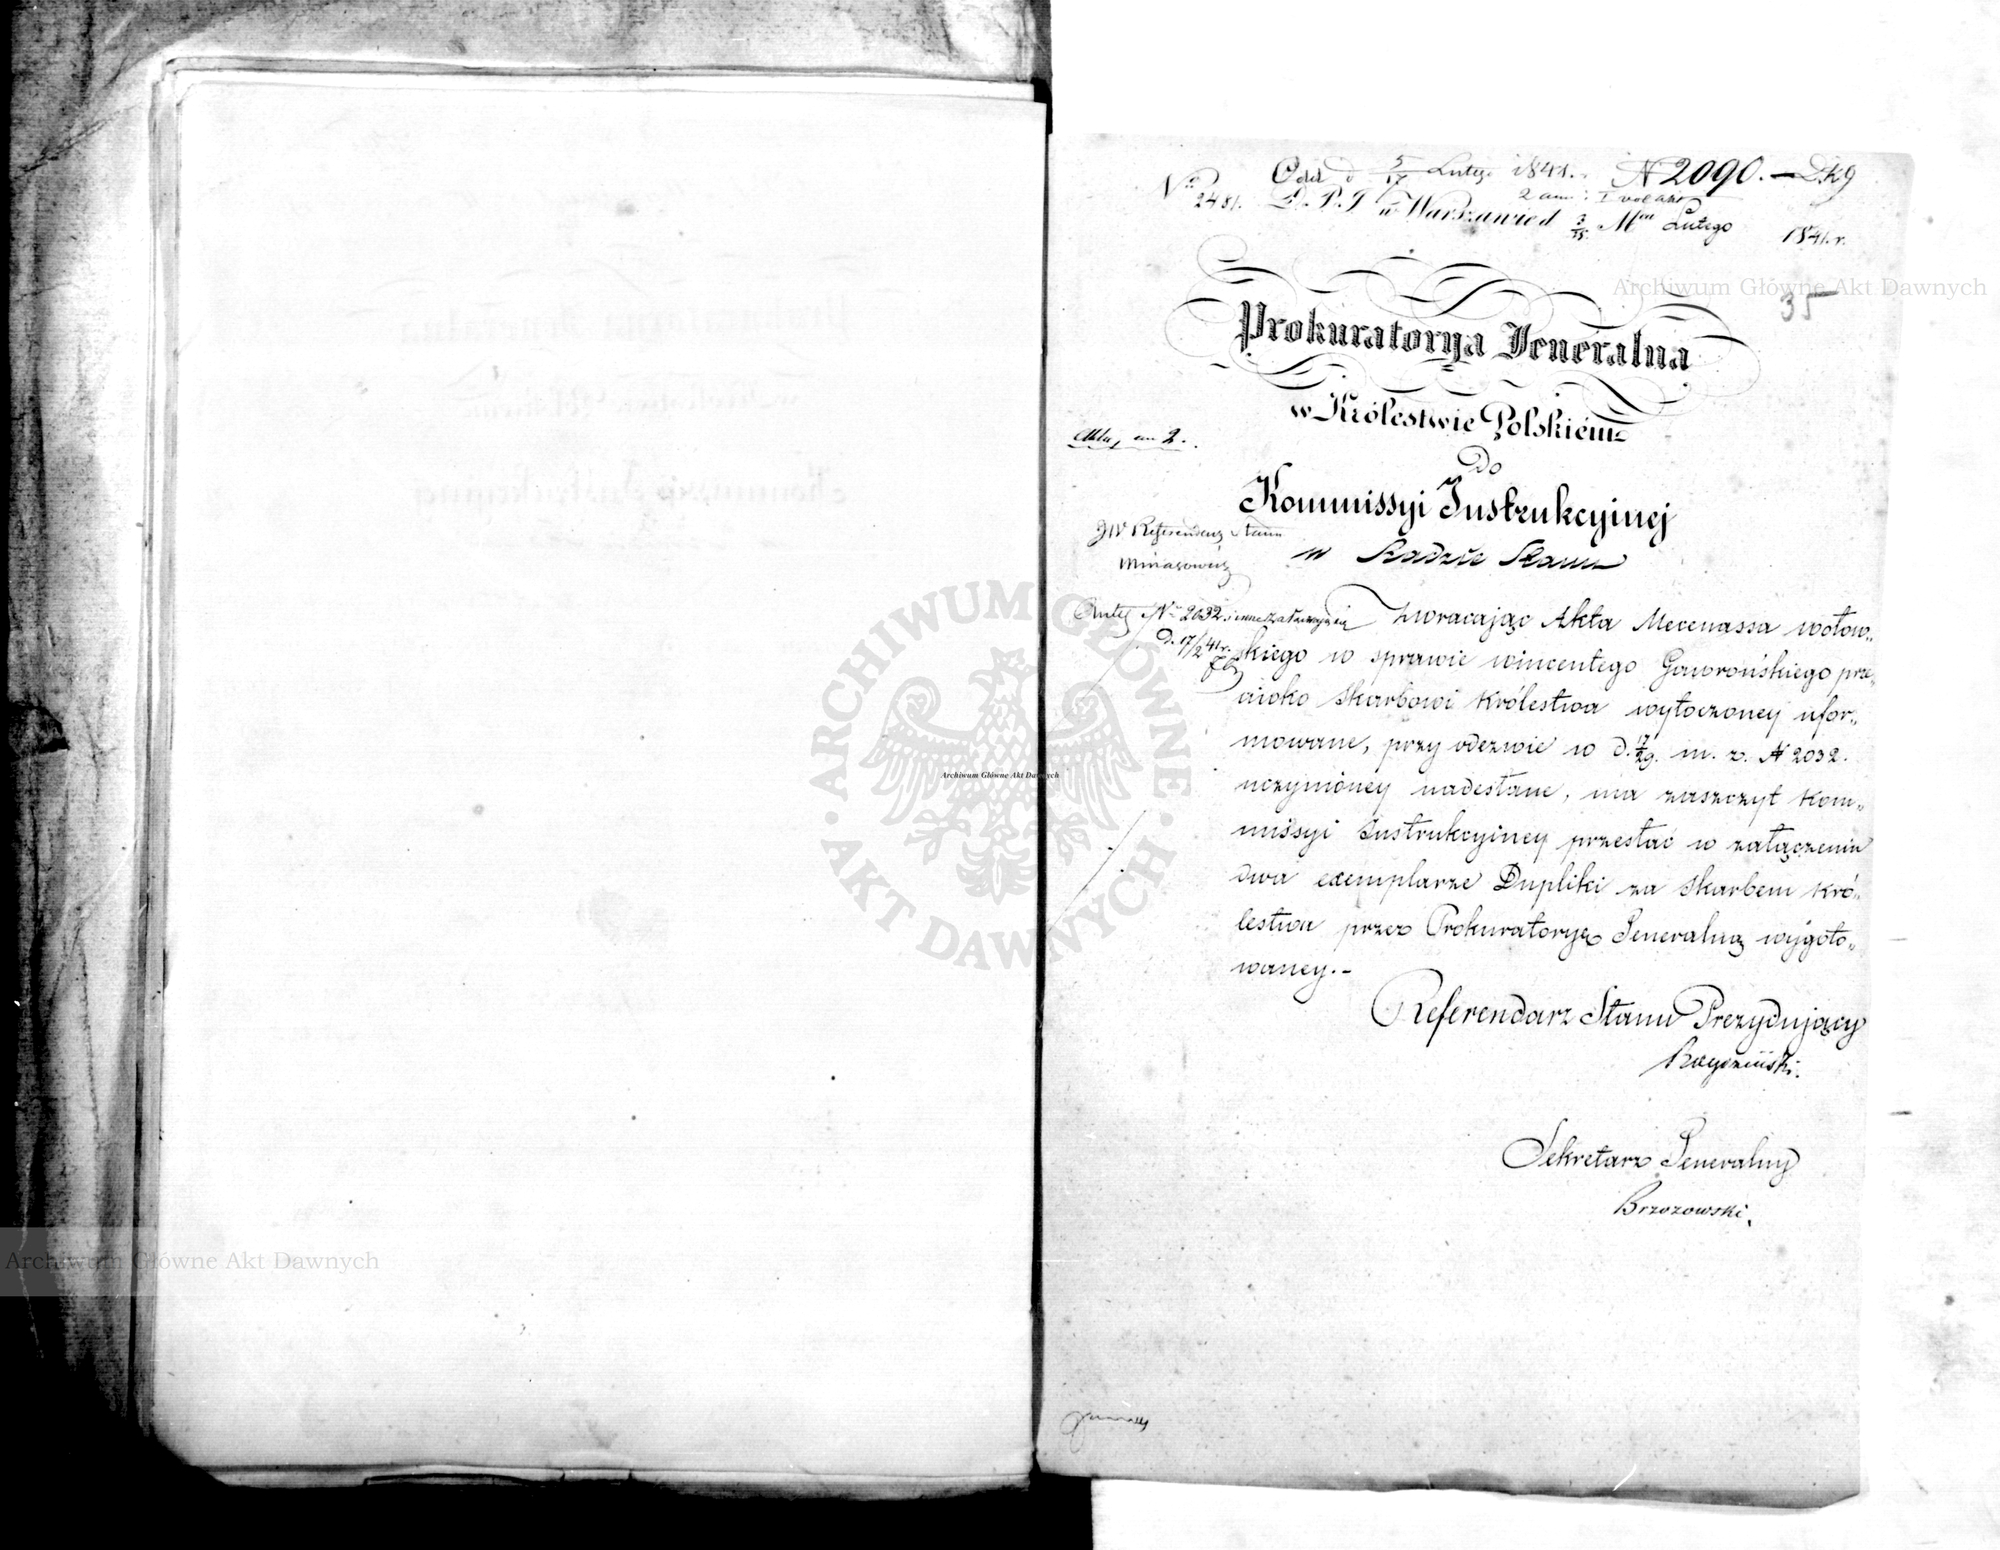 Odd d 5/17 Lutego 1841. N 2090. — D.Kg
2 ann: I vol akt
No 2481. D. P. J w Warszawie d 3/15 Mca Lutego 1841. r.
Archiwum Główne Akt Dawnych
35
Prokuratorya Jeneralna
w Królestwie Polskiém
Do
Kommissyi Instrukcyinej
w Radzie Stanu
Akta, ann 2.
JW Referendarz Stanu
Minasowicz
Antec. No 2032
D. 17/2 41 r.
Zwracając Akta Mecenassa Wołow„
skiego w sprawie Wincentego Gaworońskiego prze„
ciwko Skarbowi Królestwa wytoczoney ufor„
mowane, przy odezwie w d. 17/29. m. z. N 2032.
uczynióney nadesłane, ma zaszczyt Kom„
missyi Instrukcyiney przesłać w załączeniu
dwa exemplarze Dupliki za Skarbem Kró„
lestwa przez Prokuratoryę Jeneralną wygoto„
waney.-
Referendarz Stanu Prezydujący
Sekretarz Jeneralny
Brzozowski.
ARCHIWUM GŁÓWNE
AKT DAWNYCH
Archiwum Główne Akt Dawnych
Archiwum Główne Akt Dawnych